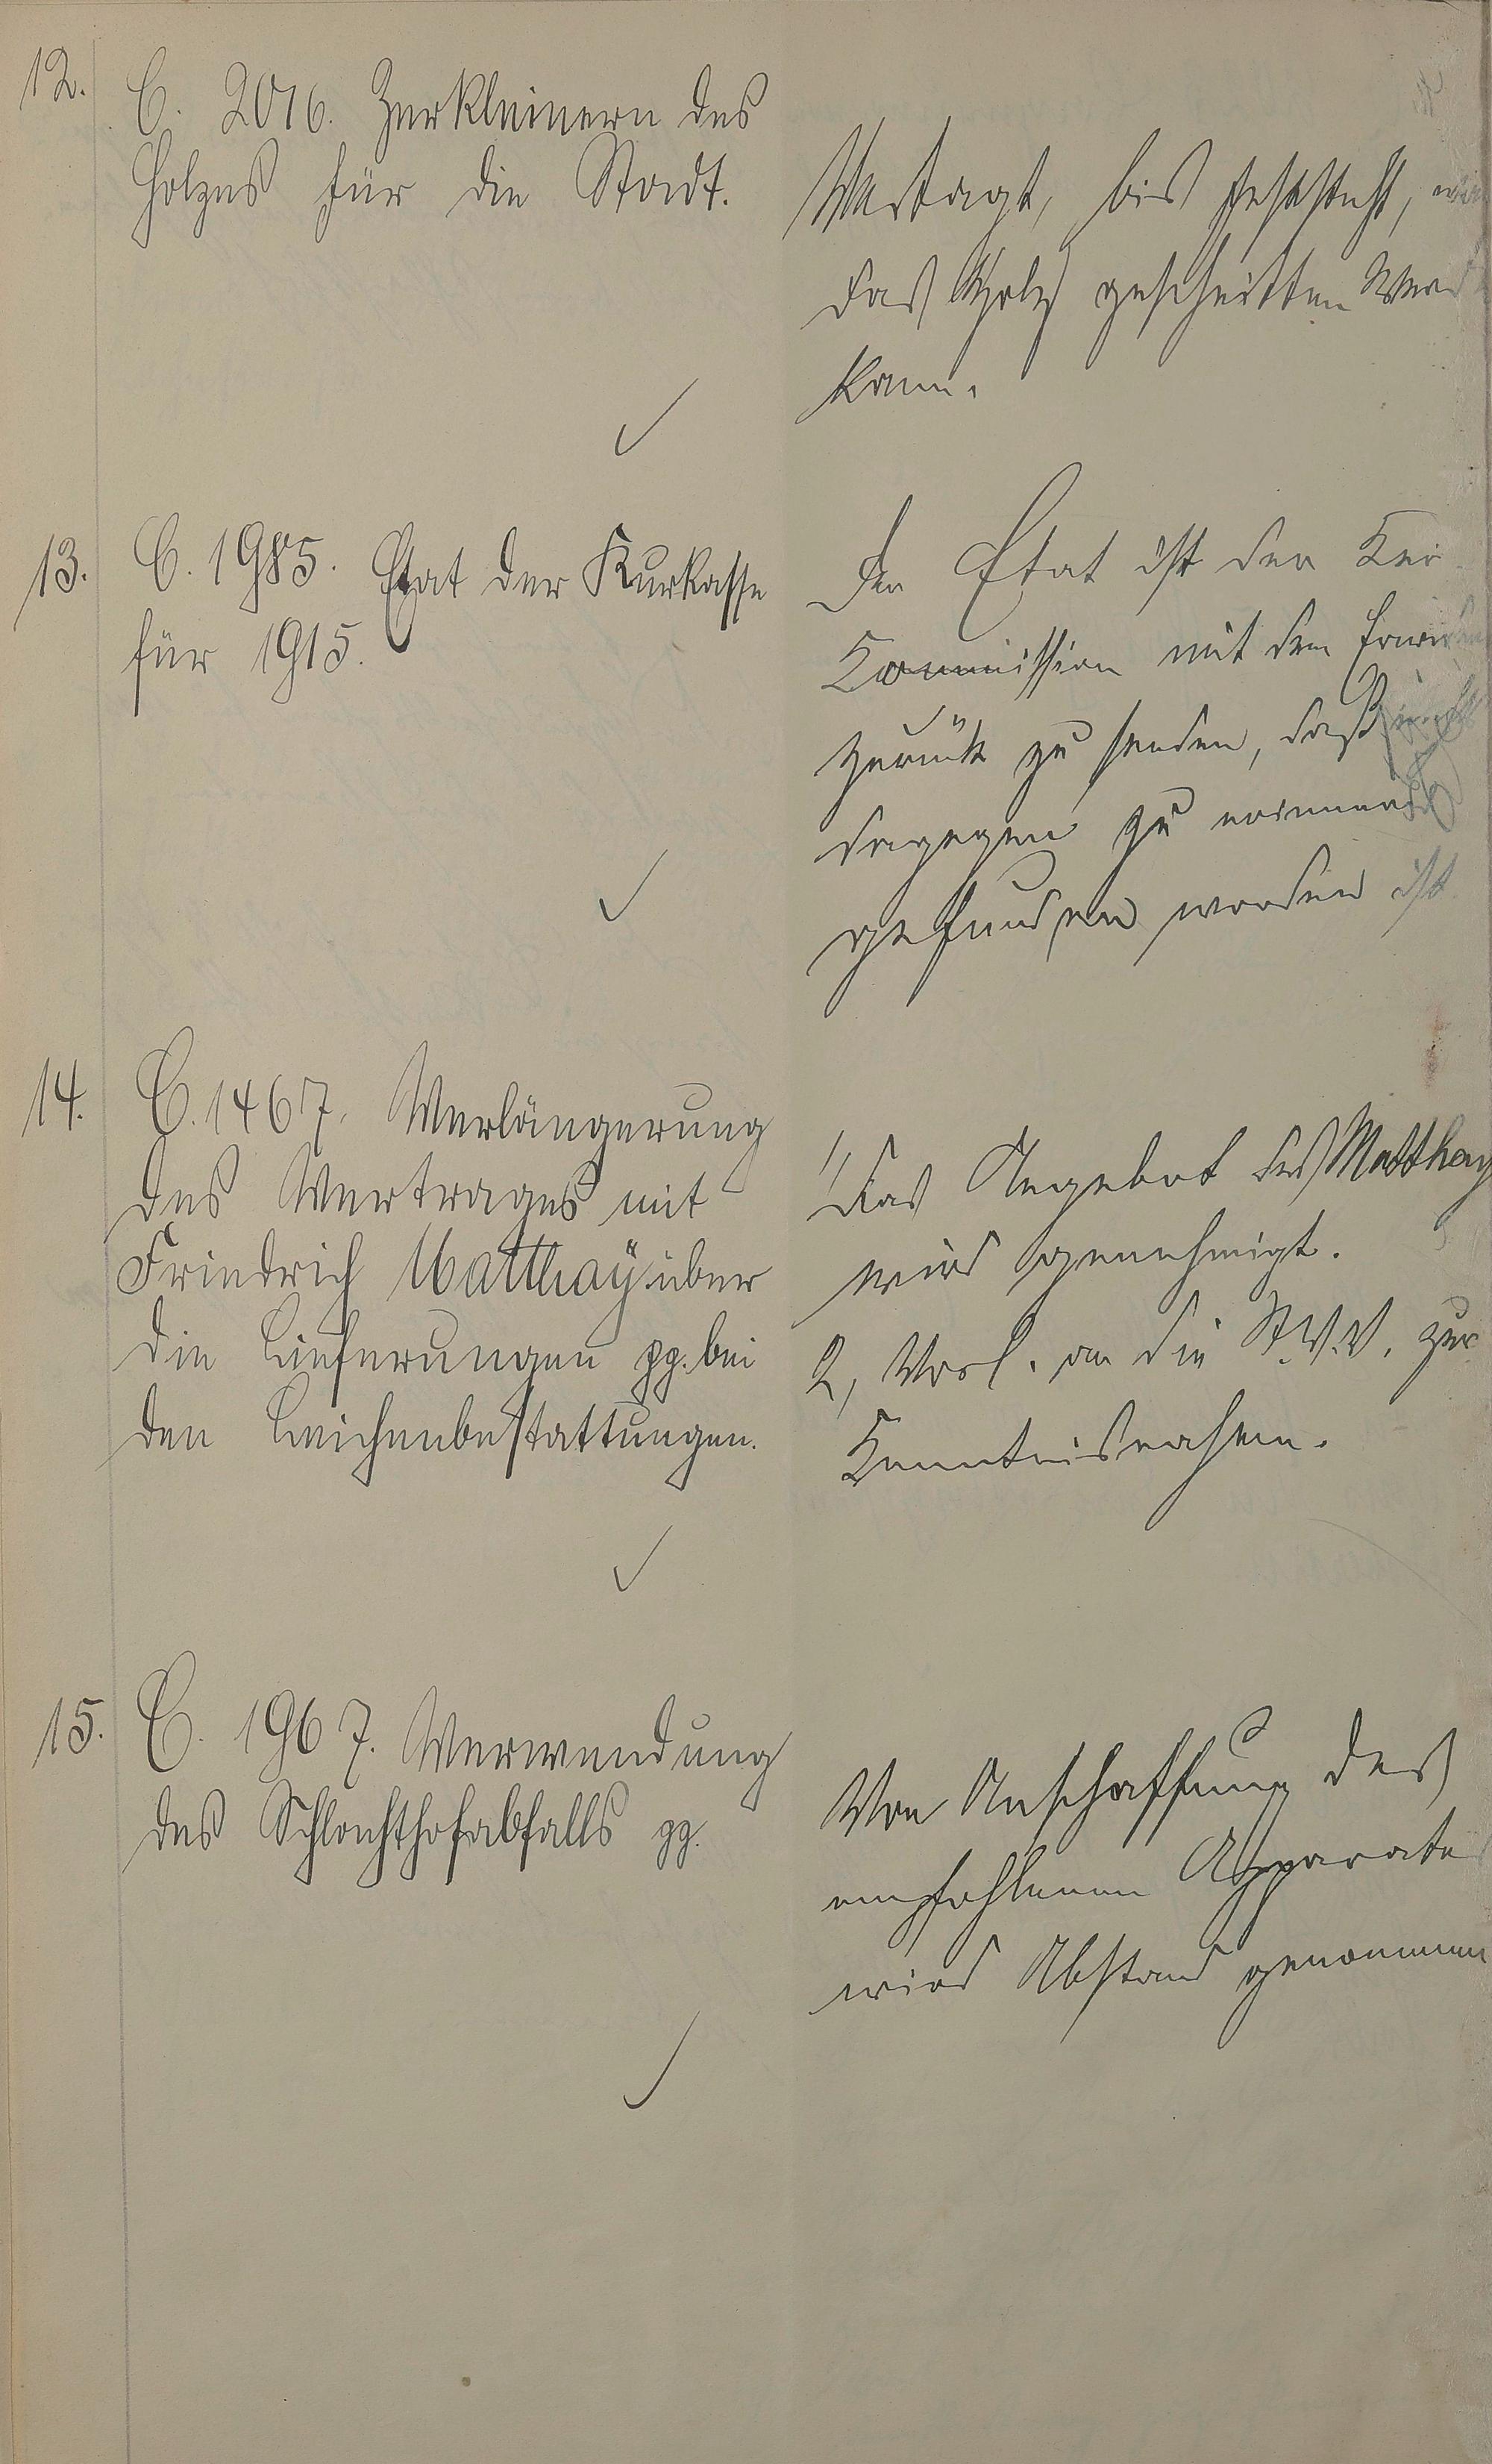 12.
C. 2016. Zerkleinern des
Holzes für die Stadt.
Vertagt, bis feststeht,
das Holz geschnitten
kann.
13.
C. 1985. Etat der Kurkasse
für 1915.
Der Etat ist der Kur
Kommission mit dem
zurück zu senden, daß nichts
dagegen zu erinnern
gefunden worden ist
14.
C. 1467. Verlängerung
des Vertrages mit
Friedrich Matthaÿ über
die Lieferungen pp. bei
den Leichenbestattungen.
1, Das Angebot des Matthay
wird genehmigt.
2, Vorl. an die St.V.V. zur
Kenntnisnahme.
15.
C. 1967. Verwendung
des Schlachthofabfalls pp.
Von Anschaffung des
empfohlenen Apparates
wird Abstand genommen